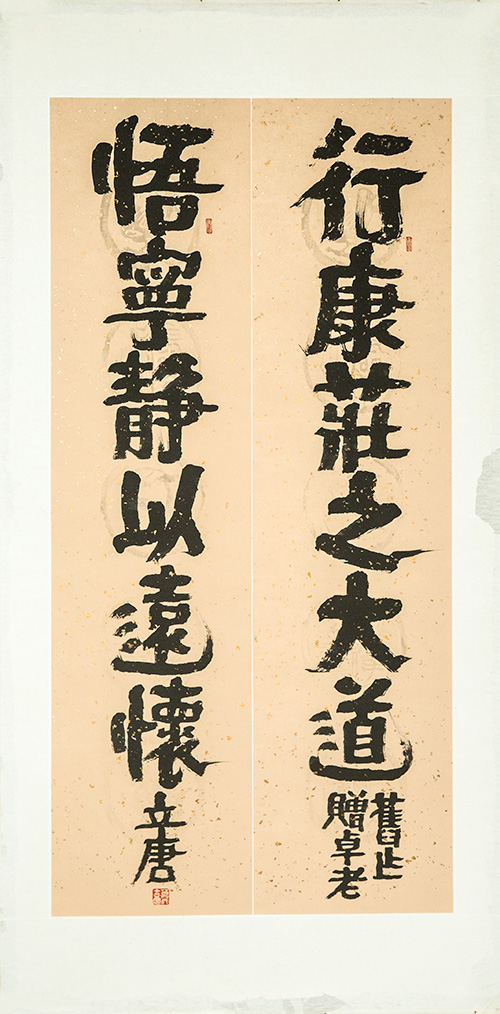 行康莊之大道
舊止
贈卓老
悟寧靜以遠懷
立唐